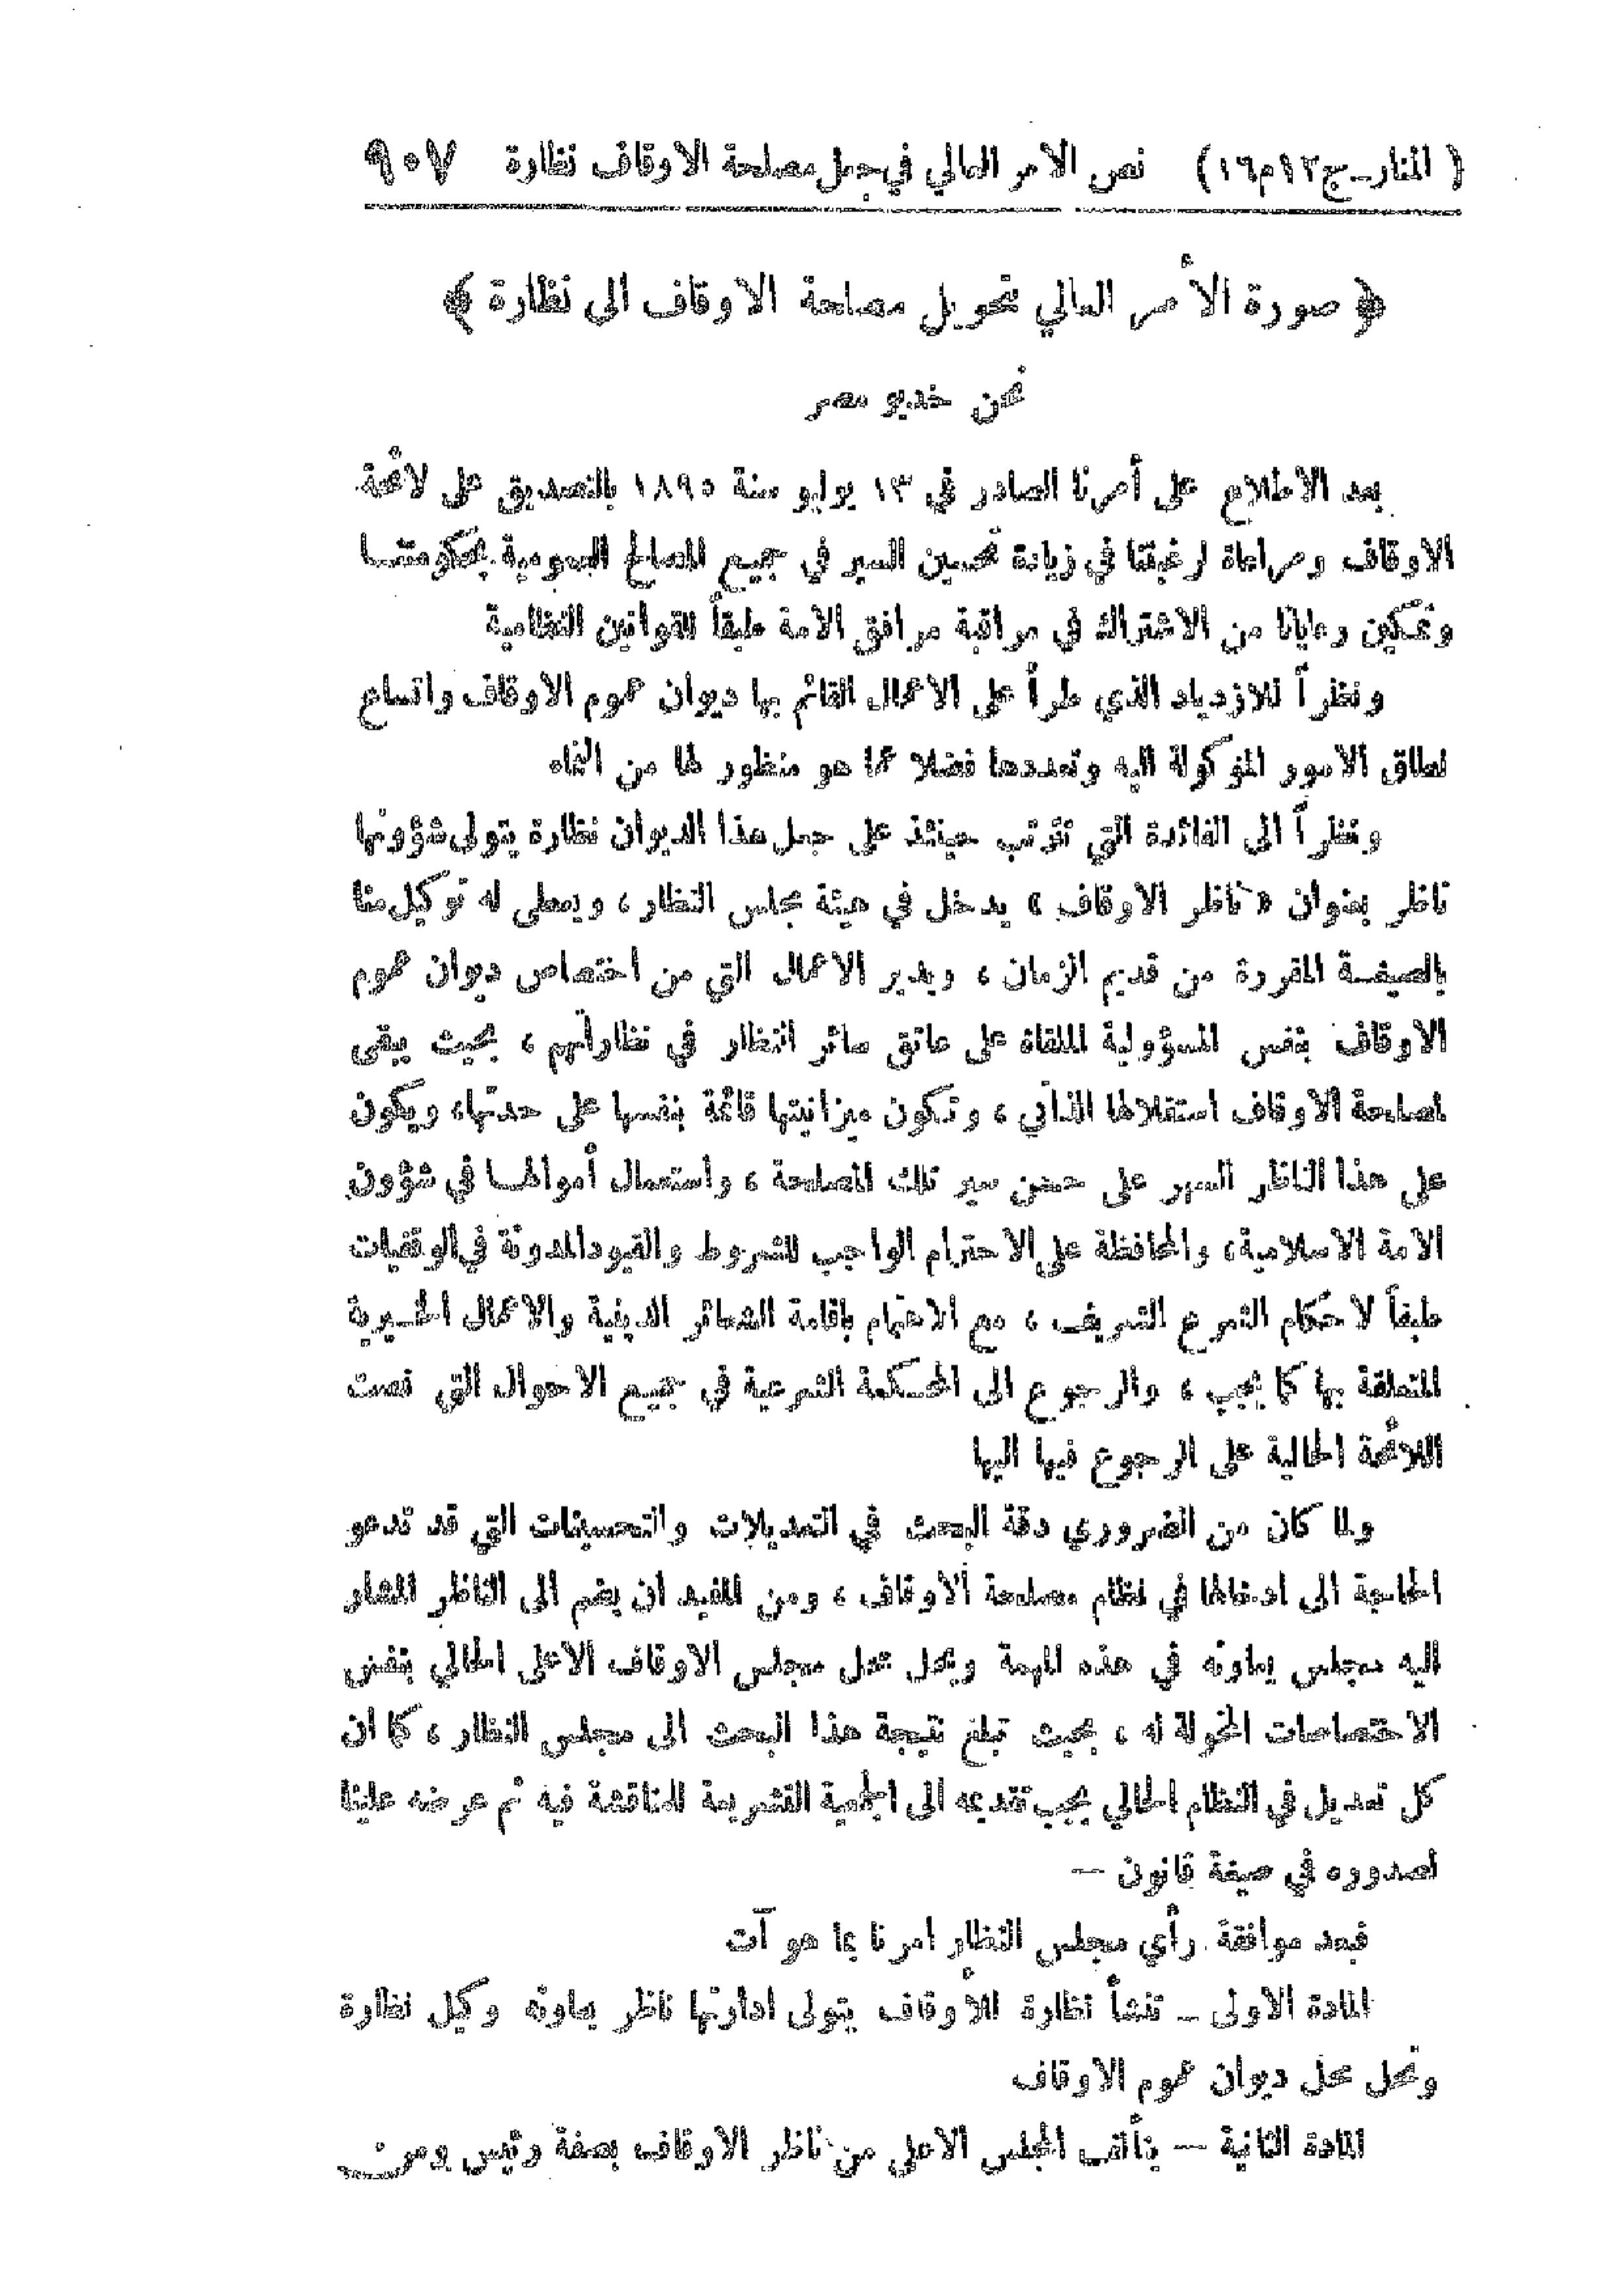 ( المنار_ج١٢م١٦) نص الامر العالي في جعل مصلحة الاوقاف نظارة ٩٠٧
﴿ صورة الأمر العالي بتحويل مصلحة الاوقاف الى نظارة ﴾
نحن خديو مصر
بعد الاطلاع على أمرنا الصادر في ١٣ يوليو سنة ١٨٩٥ بالتصديق على لائحة
الاوقاف ومراعاة لرغبتنا في زيادة تحسين السير في جميع المصالح العمومية بحكومتنا
وتمكين رعايانا من الاشتراك في مراقبة مرافق الامة طبقاً للقوانين النظامية
ونظراً للازدياد الذي طرأ على الاعمال القائم بها ديوان عموم الاوقاف واتساع
نطاق الامور الموكولة اليه وتعددها فضلا عما هو منظور لها من النماء
ونظراً الى الفائدة التي تترتب حينئذ على جعل هذا الديوان نظارة يتولى شؤونها
ناظر بعنوان « ناظر الاوقاف » يدخل في هيئة مجلس النظار ، ويعطى له توكيل منا
بالصيغة المقررة من قديم الزمان ، ويدير الاعمال التي من اختصاص ديوان عموم
الاوقاف بنفس المسؤولية الملقاة على عاتق سائر النظار في نظاراتهم ، بحيث يبقى
لمصلحة الاوقاف استقلالها الذاتي ، وتكون ميزانيتها قائمة بنفسها على حدتها، ويكون
على هذا الناظر السهر على حسن سير تلك المصلحة ، واستعمال أموالها في شؤون
الامة الاسلامية، والمحافظة على الاحترام الواجب للشروط والقيود المدونة في الوقفيات
طبقاً لاحكام الشرع الشريف ، مع الاهتمام باقامة الشعائر الدينية والاعمال الخيرية
المتعلقة بها كما يجب ، والرجوع الى المحكمة الشرعية في جميع الاحوال التي نصت
اللائحة الحالية على الرجوع فيها اليها
ولما كان من الضروري دقة البحث في التعديلات والتحسينات التي قد تدعو
الحاجة الى ادخالها في نظام مصلحة الاوقاف ، ومن المفيد ان يضم الى الناظر المشار
اليه مجلس يعاونه في هذه المهمة ويحل محل مجلس الاوقاف الاعلى الحالي بنفس
الاختصاصات المخولة له ، بحيث تبلغ نتيجة هذا البحث الى مجلس النظار ، كما ان
كل تعديل في النظام الحالي يجب تقديمه الى الجمعية التشريعية للمناقشة فيه ثم عرضه علينا
لصدوره في صيغة قانون —
فبعد موافقة رأي مجلس النظار امرنا بما هو آت
المادة الاولى _ تنشأ نظارة للأوقاف يتولى ادارتها ناظر يعاونه وكيل نظارة
وتحل محل ديوان عموم الاوقاف
المادة الثانية — يتألف المجلس الاعلى من ناظر الاوقاف بصفة رئيس ومن